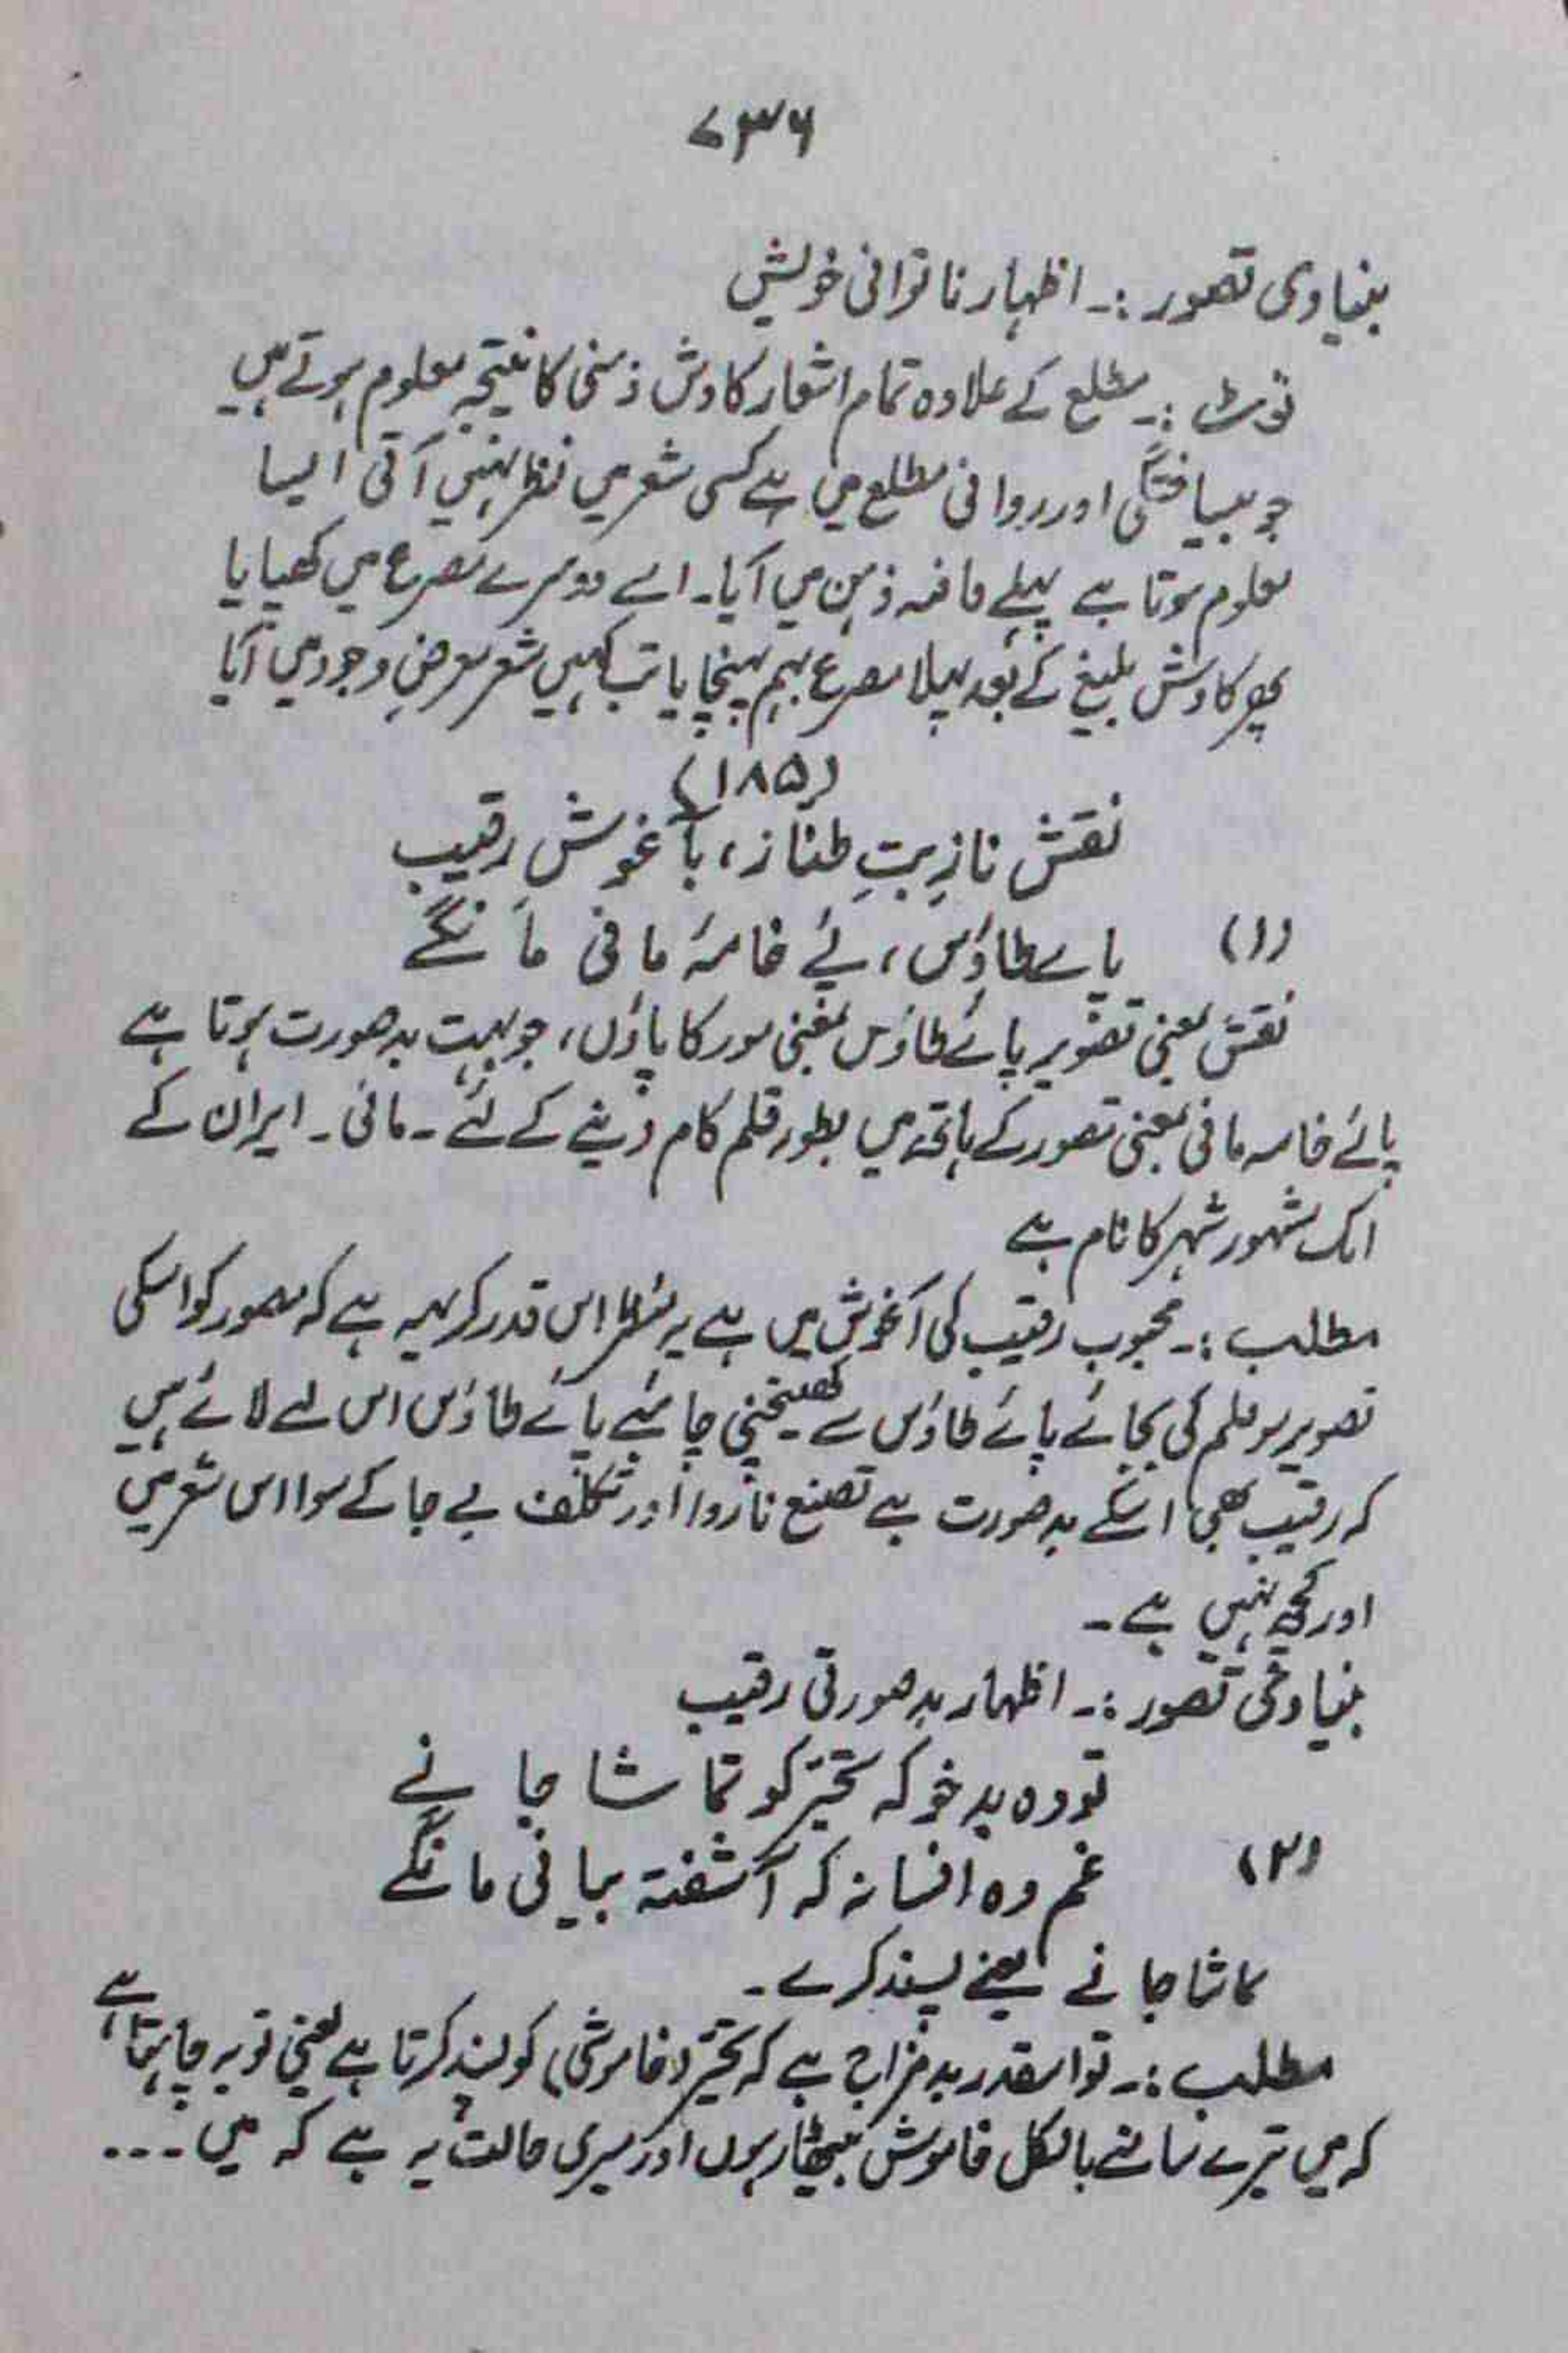 ۷۳۶
بنیادی تصور :۔ اظہار ناتوانی خویش
نوٹ :۔ مطلع کے علاوہ تمام اشعار کاوش ذہنی کا نتیجہ معلوم ہوتے ہیں
جو بیساختگی اور روانی مطلع میں ہے کسی شعر میں نظر نہیں آتی ایسا
معلوم ہوتا ہے پہلے قافیہ ذہن میں آیا۔ اسے دوسرے مصرع میں کھپایا
پھر کاوش بلیغ کے بعد پہلا مصرع بہم پہنچایا تب کہیں شعر معرضِ وجود میں آیا
(۱۸۵)
نقش نازِ بتِ طناز، بآغوش رقیب
(۱) پاے طاؤس، پئے خامۂ مانی مانگے
نقش بمعنی تصویر پائے طاؤس بمعنی مور کا پاؤں، جو بہت بدصورت ہوتا ہے
پائے خامہ مانی بمعنی مصور کے ہاتھ میں بطور قلم کام دینے کے لئے ۔ مانی ۔ ایران کے
ایک مشہور شہر کا نام ہے
مطلب :۔ محبوب رقیب کی آغوش میں ہے یہ منظر اس قدر کریہہ ہے کہ مصور کو اسکی
تصویر موقلم کی بجائے پائے طاؤس سے کھینچنی چاہئیے پائے طاؤس اس لئے لائے ہیں
کہ رقیب بھی اسکے بدصورت ہے تصنع ناروا اور تکلف بے جا کے سوا اس شعر میں
اور کچھ نہیں ہے ۔
بنیادی تصور :۔ اظہار بدصورتی رقیب
تو وہ بدخو کہ تحیّر کو تماشا جانے
(۲) غم وہ افسانہ کہ آشفتہ بیانی مانگے
تماشا جانے یعنے پسند کرے ۔
مطلب :۔ تو اسقدر بدمزاج ہے کہ تحیّر (خاموشی) کو پسند کرتا ہے یعنی تو یہ چاہتا ہے
کہ میں تیرے سامنے بالکل خاموش بیٹھا رہوں اور میری حالت یہ ہے کہ میں ۔۔۔